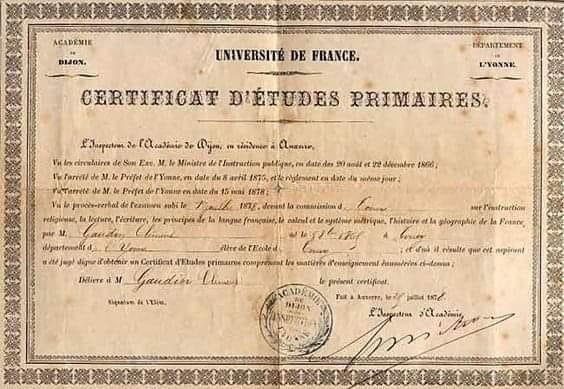 ACADÉMIE
DE
DIJON.
DÉPARTEMENT
DE
L'YONNE.
UNIVERSITÉ DE FRANCE.
CERTIFICAT D'ÉTUDES PRIMAIRES.
L'Inspecteur de l'Académie de Dijon, en résidence à Auxerre,
Vu les circulaires de Son Exc. M. le Ministre de l'Instruction publique, en date des 20 août et 22 décembre 1866;
Vu l'arrêté de M. le Préfet de l'Yonne en date du 8 avril 1875, et le règlement en date du même jour;
Vu l'arrêté de M. le Préfet de l'Yonne en date du 15 mai 1878;
Vu le procès-verbal de l'examen subi le juillet 1878 devant la commission de sur l'instruction
religieuse, la lecture, l'écriture, les principes de la langue française, le calcul et le système métrique, l'histoire et la géographie de la France,
par M. Gaudin né le à
département de l'Yonne élève de l'École de et d'où il résulte que cet aspirant
a été jugé digne d'obtenir un Certificat d'Études primaires comprenant les matières d'enseignement énumérées ci-dessus;
Délivre à M Gaudin le présent certificat.
Signature de l'Élève.
Fait à Auxerre, le juillet 1878.
L'Inspecteur d'Académie,
ACADÉMIE
DE
DIJON
INSPECTION